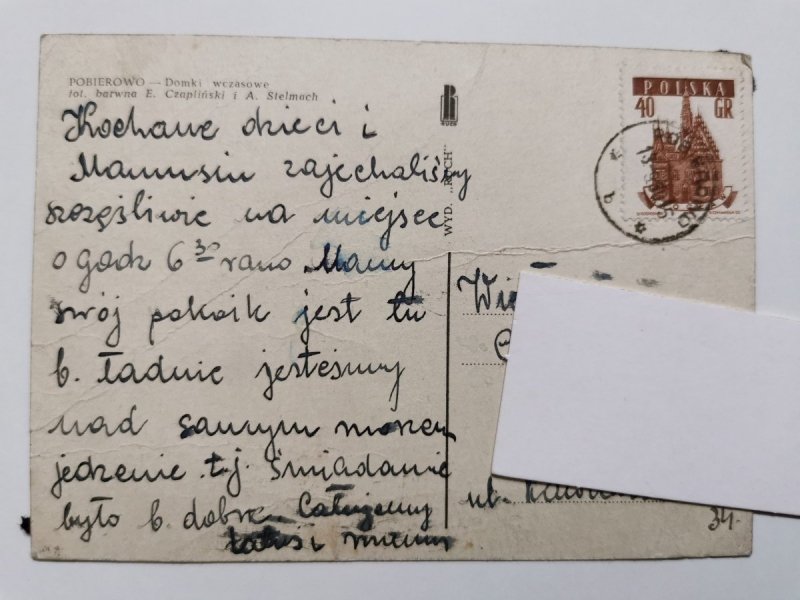 POBIEROWO — Domki wczasowe
fot. barwna E. Czapliński i A. Stelmach
Kochane dzieci i
Mamusiu zajechaliśmy
szczęśliwie na miejsce
o godz 6 30 rano. Mamy
swój pokoik jest tu
b. ładnie jesteśmy
nad samym morzem
jedzenie t.j. śniadanie
było b. dobre. Całujemy
tatuś i mama
RUCH
WYD. „RUCH"
POLSKA
40 GR
ul.
34.